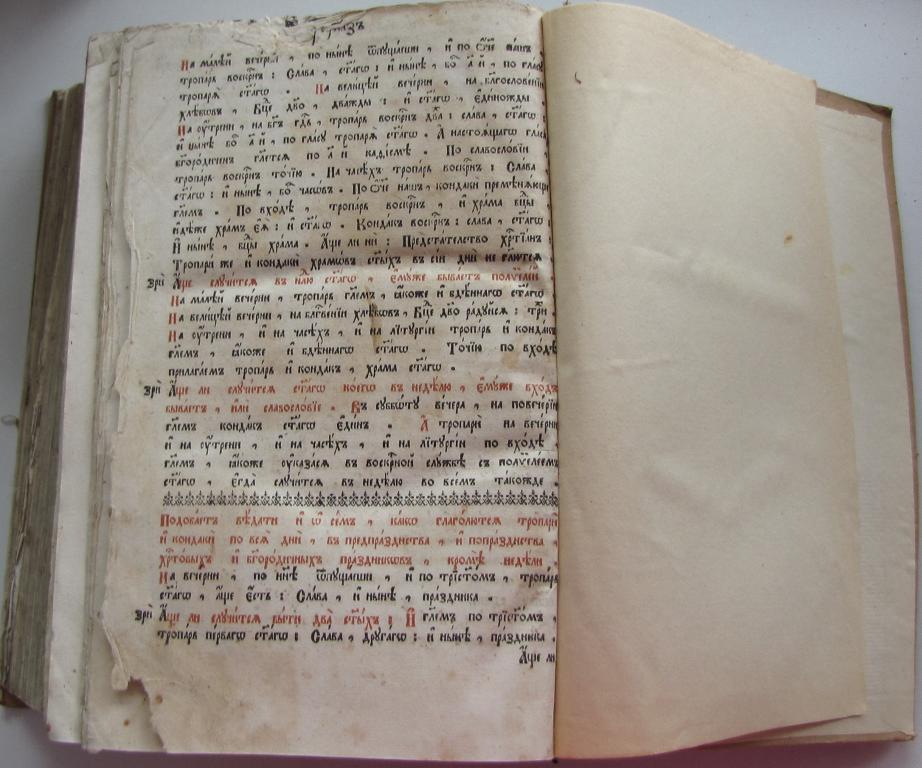 На ма́лѣй вече́рни , по ны́нѣ ѿпуща́еши , и҆ по ѻ҆́ч҃е на́шъ
тропа́рь воскр҃нъ : Сла́ва , ст҃а́гѡ : и҆ ны́нѣ , бг҃о а҃ й , по гла́су
тропаря̀ ст҃а́гѡ . На вели́цѣй вече́рни , на блгⷭ҇ове́нїи
хлѣ́бѡвъ , Бц҃е дв҃о , два́жды : и҆ ст҃а́гѡ , є҆ди́ножды
На ѹ҆́трени , на бг҃ъ гдⷭ҇ь , тропа́рь воскр҃нъ два̀ : сла́ва , ст҃а́гѡ :
и҆ ны́нѣ бг҃о а҃ й , по гла́су тропаря̀ ст҃а́гѡ . А настоѧ́щагѡ гла́са
бг҃оро́диченъ гл҃етсѧ по а҃ й каѳі́смѣ . По славосло́вїи
тропа́рь воскр҃нъ то́чїю . На часѣ́хъ тропа́рь воскр҃нъ : Сла́ва
ст҃а́гѡ : и҆ ны́нѣ , бг҃о часѡ́въ . По ѻ҆́ч҃е на́шъ , кондакѝ премѣнѧ́юще
гл҃емъ . По вхо́дѣ , тропа́рь воскр҃нъ , и҆ хра́ма бц҃ы ,
и҆дѣ́же хра́мъ є҆ѧ̀ : и҆ ст҃а́гѡ . Конда́къ воскр҃нъ : сла́ва , ст҃а́гѡ :
и҆ ны́нѣ , бц҃ы хра́ма . А҆́ще ли нѝ : Предста́телство хрⷭ҇тїа́нъ :
Тропари́ же и҆ кондакѝ хра́мѡвъ ст҃ы́хъ въ сі́й де́нь не гл҃ютсѧ
зрѝ А҆́ще случи́тсѧ въ нлⷣю ст҃а́гѡ , є҆му́же быва́етъ полѷеле́й
На ма́лѣй вече́рни , тропа́рь гл҃емъ , ꙗ҆́коже и҆ бдѣ́ннагѡ ст҃а́гѡ
На вели́цѣй вече́рни , на блгⷭ҇ве́нїи хлѣ́бѡвъ , Бц҃е дв҃о ра́дуйсѧ : три̑
На ѹ҆́трени , и҆ на часѣ́хъ , и҆ на лїтꙋргі́и тропа́рь и҆ конда́къ
гл҃емъ , ꙗ҆́коже и҆ бдѣ́ннагѡ ст҃а́гѡ . То́чїю по вхо́дѣ
прилага́емъ тропа́рь и҆ конда́къ , хра́ма ст҃а́гѡ .
зрѝ А҆́ще ли случи́тсѧ ст҃а́гѡ ко́егѡ въ недѣ́лю , є҆му́же вхо́дъ
быва́етъ , и҆лѝ славосло́вїе . Въ суббѡ́ту ве́чера , на повече́рїи
гл҃емъ конда́къ ст҃а́гѡ є҆ди́нъ . А тропарѝ на вече́рни
и҆ на ѹ҆́трени , и҆ на часѣ́хъ , и҆ на лїтꙋргі́и по вхо́дѣ ,
гл҃емъ , ꙗ҆́коже ѹ҆каза́сѧ въ воскрⷭ҇ной слу́жбѣ съ полѷеле́емъ
ст҃а́гѡ , є҆гда̀ случи́тсѧ въ недѣ́лю во все́мъ тако́жде .
Подоба́етъ вѣ́дати и҆ ѡ҆ се́мъ , ка́кѡ глаго́лютсѧ тропарѝ
и҆ кондакѝ по всѧ̀ днѝ , въ предпра́зднства , и҆ попра́зднства ,
хрⷭ҇то́выхъ и҆ бг҃оро́дичныхъ пра́здникѡвъ , кромѣ̀ недѣ́ли .
На вече́рни , по нн҃ѣ ѿпуща́еши , и҆ по трⷭ҇то́мъ , тропа́рь
ст҃а́гѡ , а҆́ще є҆́сть : Сла́ва , и҆ ны́нѣ , пра́здника .
зрѝ А҆́ще ли случи́тсѧ бы́ти два̀ ст҃ы́хъ : И҆ гл҃емъ по трⷭ҇то́мъ ,
тропа́рь пе́рвагѡ ст҃а́гѡ : Сла́ва , друга́гѡ : и҆ ны́нѣ , пра́здника .
А҆́ще ли